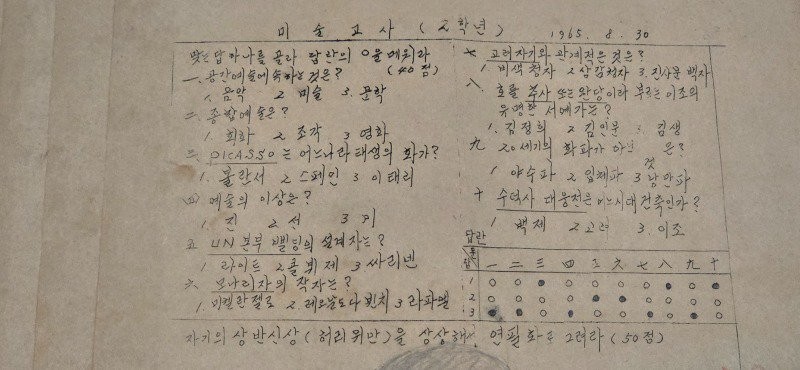 미술고사 (2학년) 1965. 8. 30
맞는 답 하나를 골라 답란의 O을 메워라
(40점)
一. 공간예술에 속하는 것은?
1. 음악 2 미술 3. 문학
二. 종합예술은?
1. 회화 2 조각 3 영화
三. PICASSO는 어느나라 태생의 화가?
1. 불란서 2 스페인 3 이태리
四 예술의 이상은?
1. 진 2 선 3 미
五 UN 본부 삘딩의 설계자는?
1 라이트 2 콜뷔제 3 싸리넨
六 모나리자의 작자는?
1. 미켈란젤로 2 레오날도다빈치 3 라파엘
七 고려자기와 관계적은 것은?
1 비색청자 2 상감청자 3. 진사문 백자
八 호를 추사 또는 완당이라 부르는 이조의
유명한 서예가는?
1. 김정희 2 김인문 3. 김생
九 20세기의 화파가 아닌 것은?
1 야수파 2 입체파 3 낭만파
十 수덕사 대웅전은 어느시대 건축인가?
1 백제 2 고려 3. 이조
답란
一 二 三 四 五 六 七 八 九 十
1 ○ ○ ● ○ ○ ○ ○ ● ○ ●
2 ○ ○ ○ ○ ● ● ○ ○ ○ ○
3 ● ● ○ ● ○ ○ ● ○ ● ●
자기의 상반신상(허리위만)을 상상해서 연필화로 그려라 (50점)